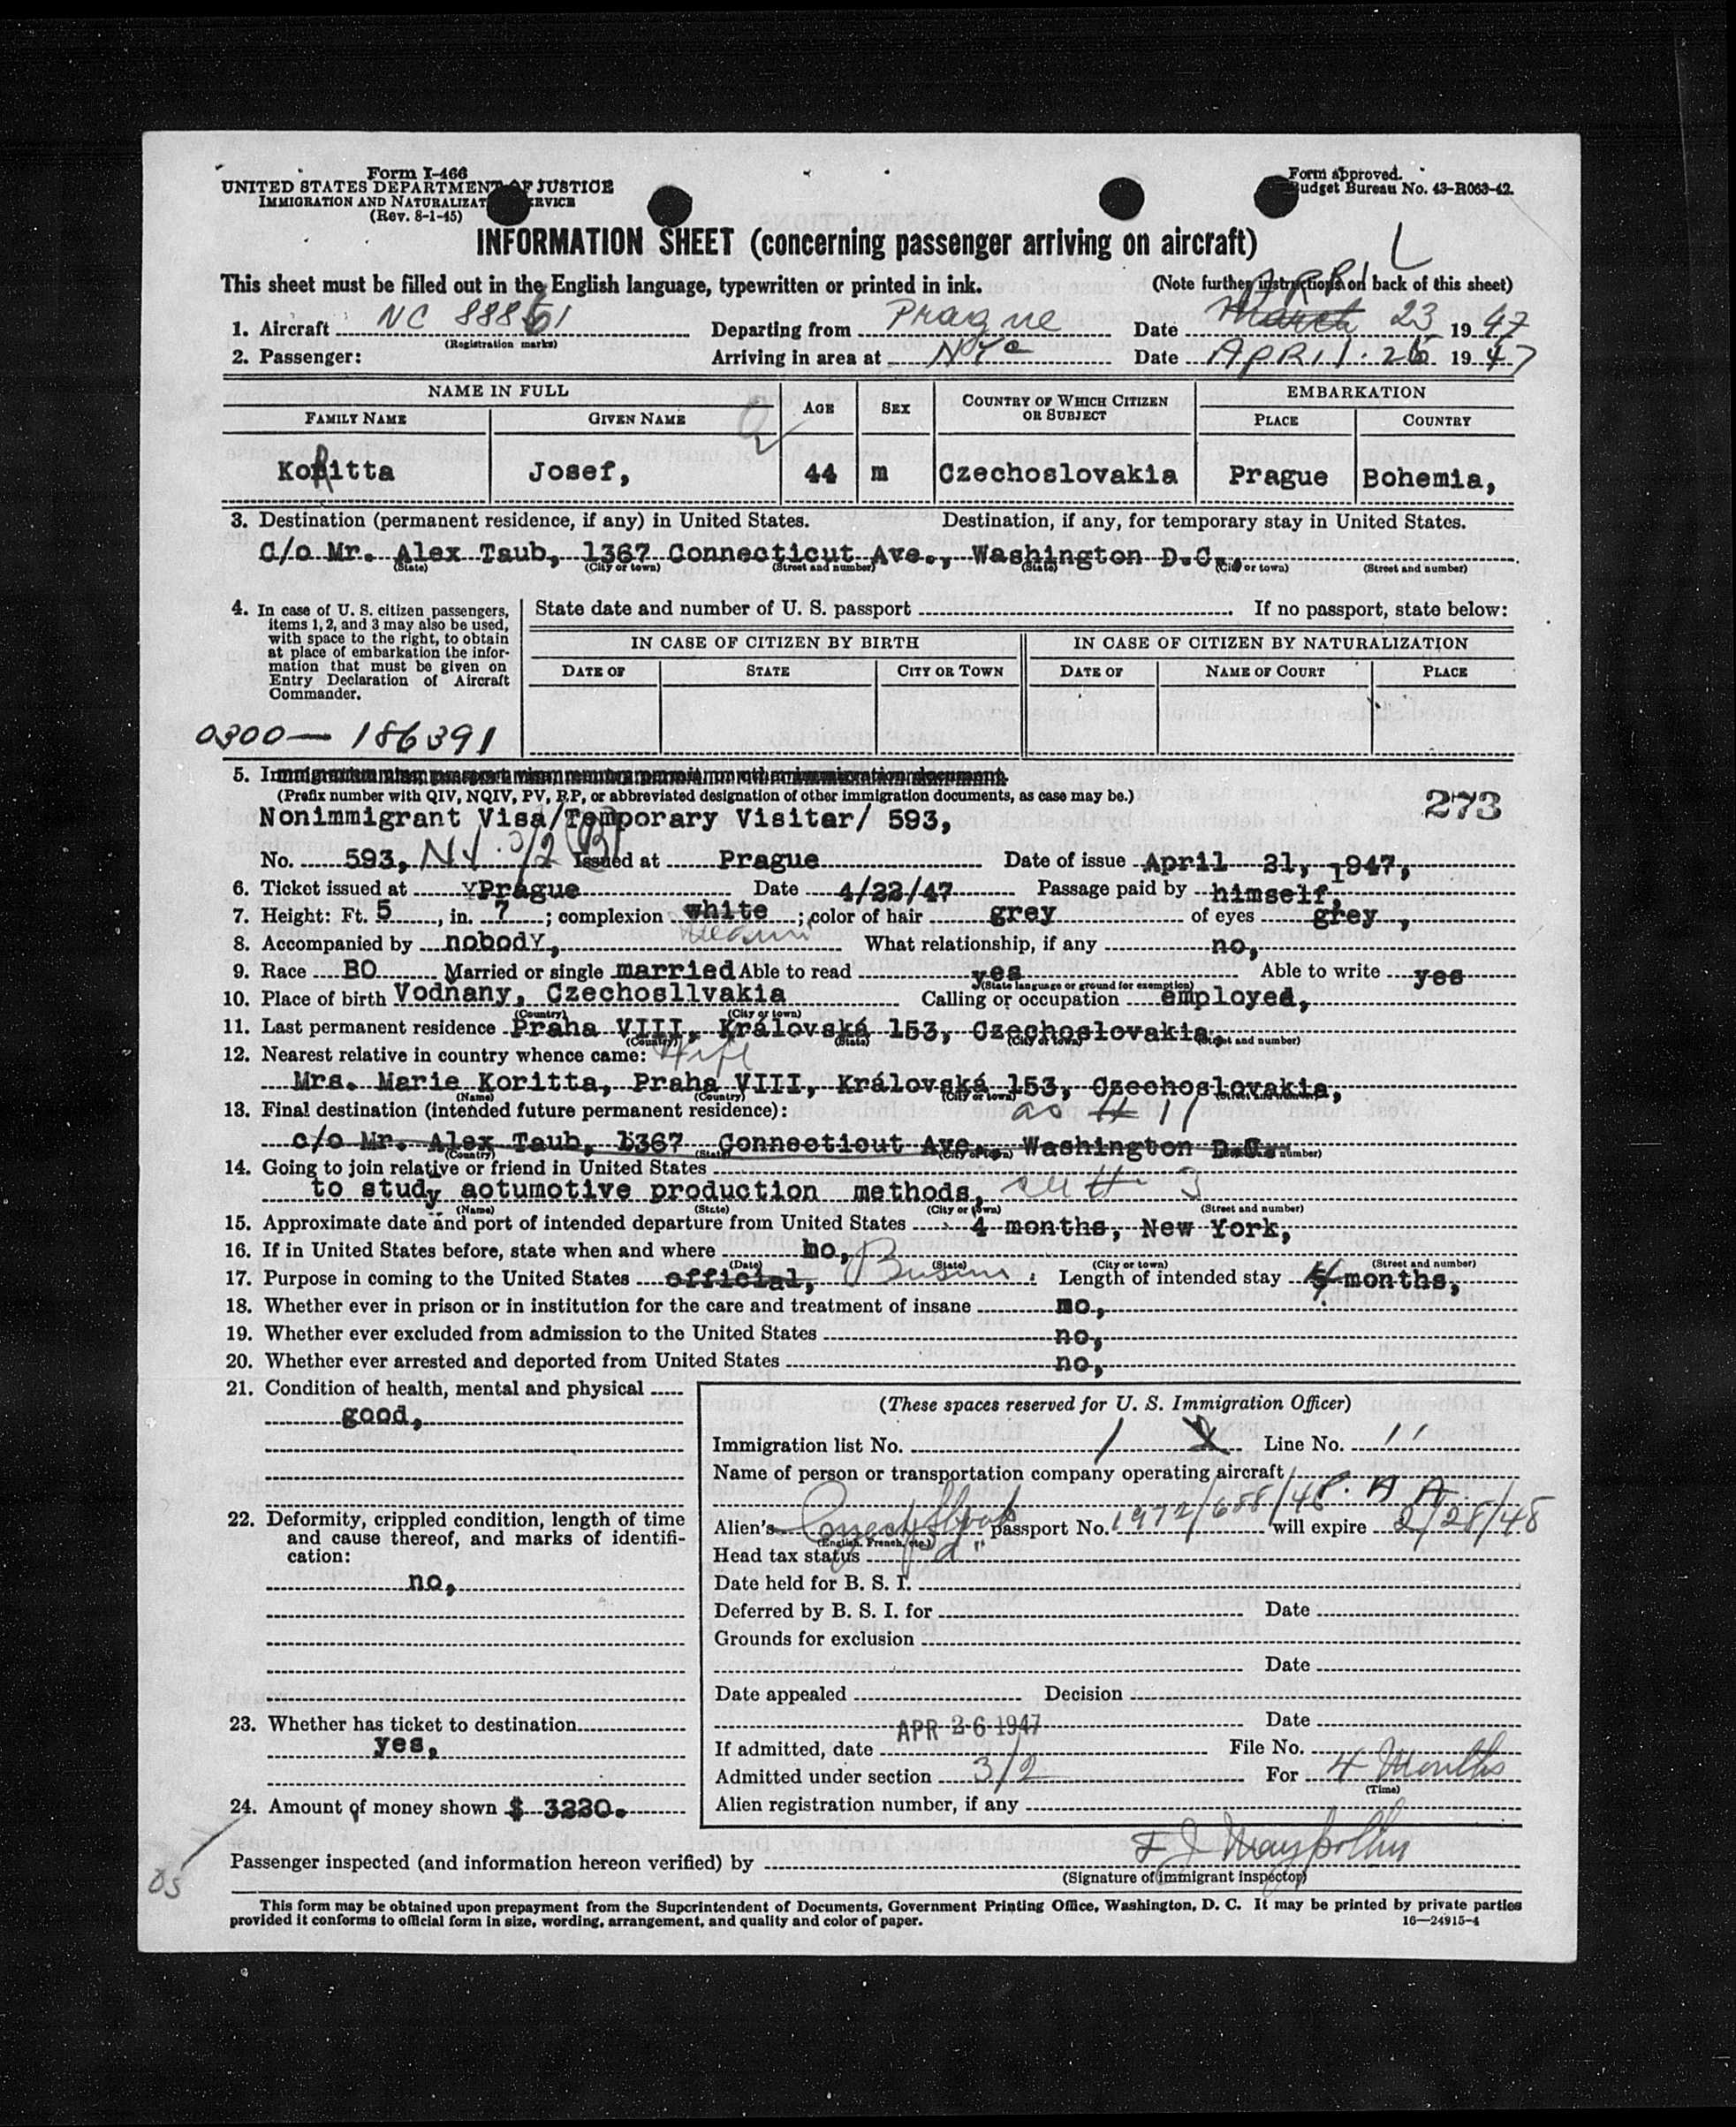 Form I-466
UNITED STATES DEPARTMENT OF JUSTICE
IMMIGRATION AND NATURALIZAT RVICE
(Rev. 8-1-45)
Form approved.
Budget Bureau No. 43-R063-42.
INFORMATION SHEET (concerning passenger arriving on aircraft)
This sheet must be filled out in the English language, typewritten or printed in ink. (Note further instructions on back of this sheet)
APRIL
1. Aircraft NC 88861 Departing from Prague Date March 23 1947
(Registration marks)
2. Passenger: Arriving in area at NYC Date APRIl 26 1947
NAME IN FULL AGE SEX COUNTRY OF WHICH CITIZEN OR SUBJECT EMBARKATION
FAMILY NAME GIVEN NAME PLACE COUNTRY
KoRitta Josef, 44 m Czechoslovakia Prague Bohemia,
3. Destination (permanent residence, if any) in United States. Destination, if any, for temporary stay in United States.
C/o Mr. Alex Taub, 1367 Connecticut Ave., Washington D.C.,
(State) (City or town) (Street and number) (State) (City or town) (Street and number)
4. In case of U. S. citizen passengers, items 1, 2, and 3 may also be used, with space to the right, to obtain at place of embarkation the information that must be given on Entry Declaration of Aircraft Commander.
State date and number of U. S. passport If no passport, state below:
IN CASE OF CITIZEN BY BIRTH IN CASE OF CITIZEN BY NATURALIZATION
DATE OF STATE CITY OR TOWN DATE OF NAME OF COURT PLACE
0300 — 186391
5. Immigration
(Prefix number with QIV, NQIV, PV, RP, or abbreviated designation of other immigration documents, as case may be.)
273
Nonimmigrant Visa/Temporary Visitar/ 593,
No. 593, NY. 3/2 (B) Issued at Prague Date of issue April 21, 1947,
6. Ticket issued at Prague Date 4/22/47 Passage paid by himself,
7. Height: Ft. 5, in. 7; complexion white; color of hair grey of eyes grey,
8. Accompanied by nobody, What relationship, if any no,
9. Race BO Married or single married Able to read yes Able to write yes
(State language or ground for exemption)
10. Place of birth Vodňany, Czechosllvakia Calling or occupation employed,
(Country) (City or town)
11. Last permanent residence Praha VIII, Královská 153, Czechoslovakia,
(Country) (State) (City or town) (Street and number)
12. Nearest relative in country whence came: Wife
Mrs. Marie Koritta, Praha VIII, Královská 153, Czechoslovakia,
(Name) (Country) (City or town) (Street and number)
13. Final destination (intended future permanent residence): as # 11
c/o Mr. Alex Taub, 1367 Connecticut Ave. Washington D.C.
(Country) (State) (City or town) (Street and number)
14. Going to join relative or friend in United States
to study aotumotive production methods, # 3
(Name) (State) (City or town) (Street and number)
15. Approximate date and port of intended departure from United States 4 months, New York,
16. If in United States before, state when and where no,
(Date) (State) (City or town) (Street and number)
17. Purpose in coming to the United States official, Length of intended stay 4 months,
18. Whether ever in prison or in institution for the care and treatment of insane no,
19. Whether ever excluded from admission to the United States no,
20. Whether ever arrested and deported from United States no,
21. Condition of health, mental and physical
good,
22. Deformity, crippled condition, length of time and cause thereof, and marks of identification:
no,
23. Whether has ticket to destination
yes,
24. Amount of money shown $ 3220.
(These spaces reserved for U. S. Immigration Officer)
Immigration list No. 1 Line No. 11
Name of person or transportation company operating aircraft
P. A A
Alien's passport No. 1972/688/46 will expire 2/28/48
(English, French, etc.)
Head tax status "a"
Date held for B. S. I.
Deferred by B. S. I. for Date
Grounds for exclusion
Date
Date appealed Decision
Date
APR 26 1947
If admitted, date File No.
Admitted under section 3/2 For 4 Months
(Time)
Alien registration number, if any
05
Passenger inspected (and information hereon verified) by
(Signature of immigrant inspector)
This form may be obtained upon prepayment from the Superintendent of Documents, Government Printing Office, Washington, D. C. It may be printed by private parties
provided it conforms to official form in size, wording, arrangement, and quality and color of paper. 16—24915-4